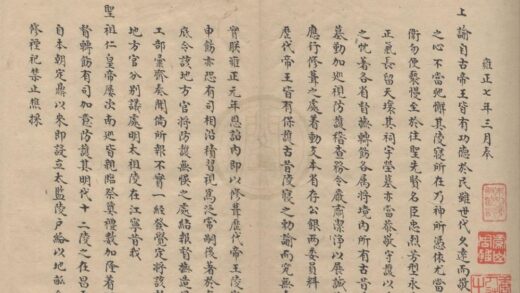 雍正七年三月奉
上諭自古帝王皆有功德於民雖世代久遠而敬
之心不當弛懈其陵寢所在乃神所憑依尤當
衛勿使褻慢至於往聖先賢名臣忠烈芳型永
正氣長留天壤其祠宇塋墓亦當恭敬守護以
之忱著各省督撫轉飭各属將境内所有古昔
墓勤加巡視防護稽查務令嚴肅潔淨以展誠
應行修葺之處著動支本省存公銀兩委員料
歷代帝王皆有保護古昔陵寢之勅諭而究無
朕雍正元年恩詔內即以修葺歷代帝王陵寢
申飭亦恐有司相沿積習視為泛常嗣後著於
底令該地方官將防護無悮之處結報督撫造
工部彙齊奏聞倘所報不實一經發覺定將該
地方官分别議處明太祖陵在江寧昔我
聖祖仁皇帝屢次南巡皆親臨祭奠禮數加隆着
督轉飭有司加意防護其明代十二陵之在昌
自本朝定鼎以來即設立太監陵戶給以地畝
修禋祀禁止樵採